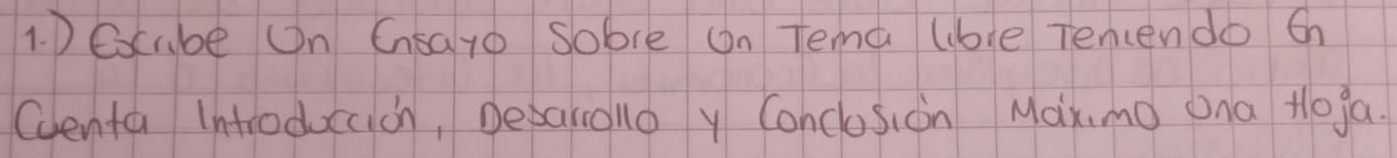 1.) Escribe Un Ensayo Sobre Un Tema libre Teniendo En
Cuenta Introducción, Desarrollo y Conclusión Máximo Una Hoja.